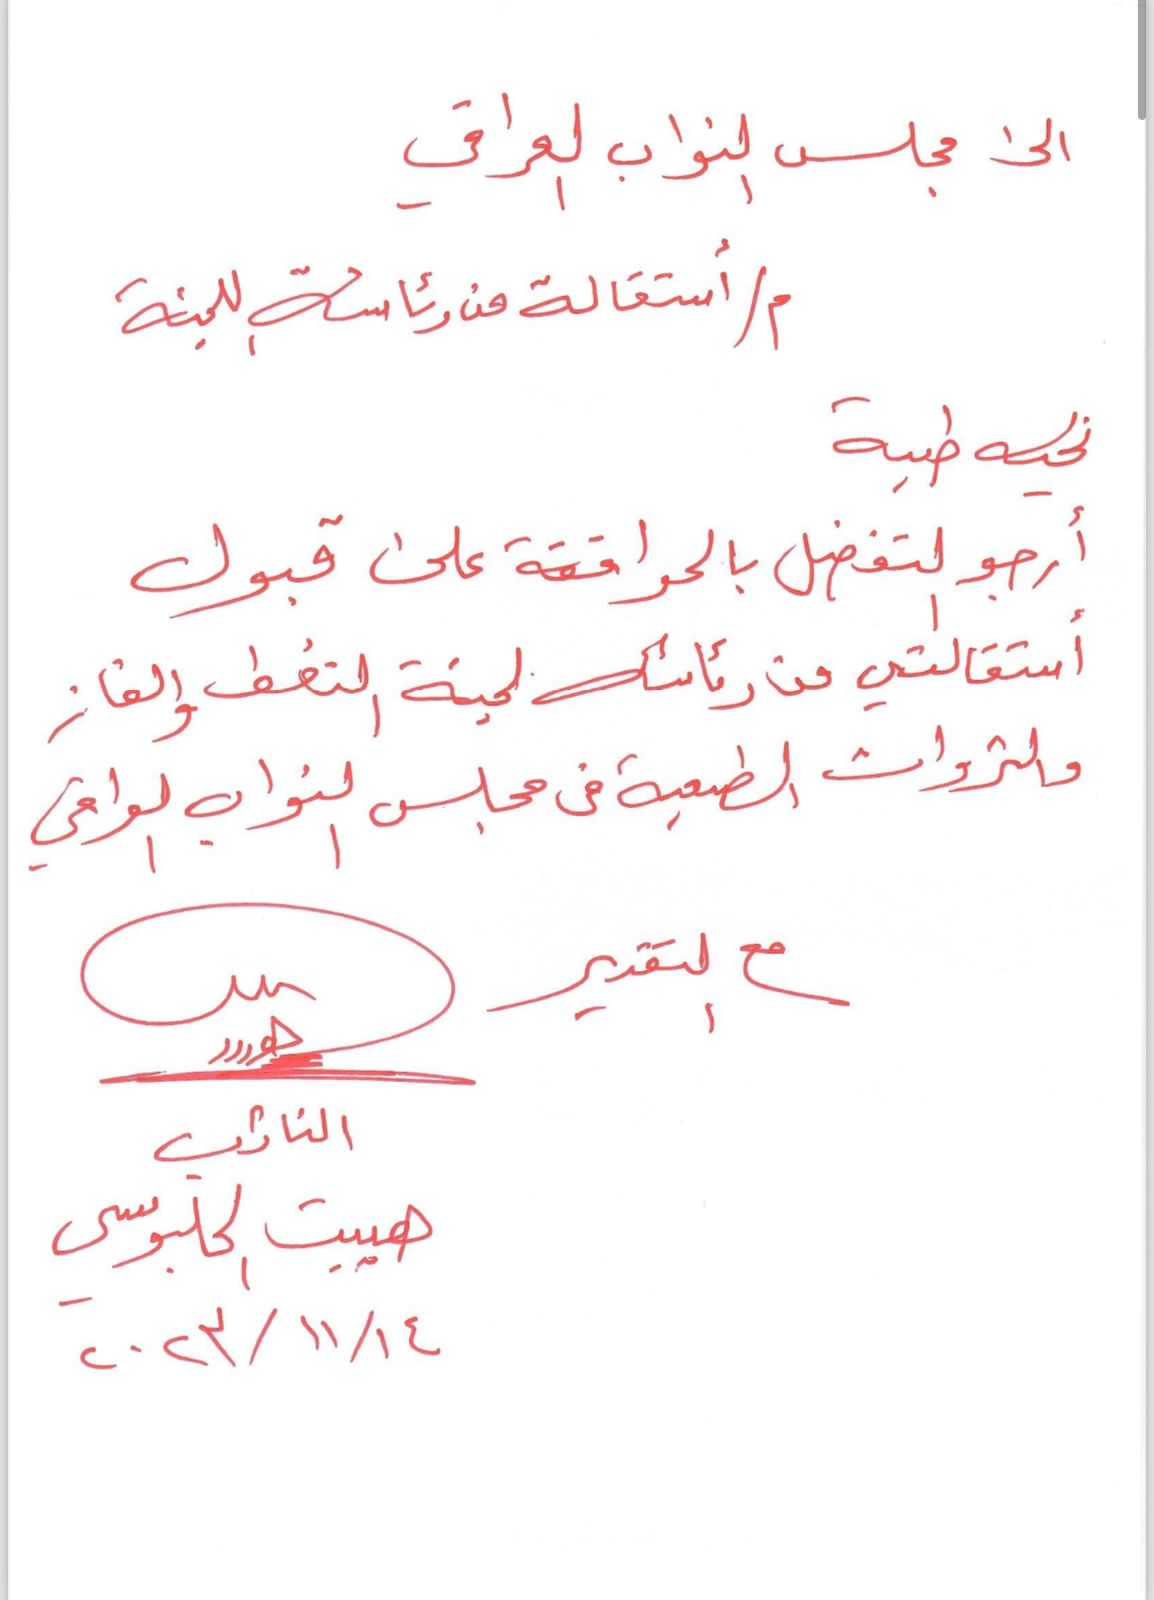 الى مجلس النواب العراقي
م/ أستقالة من رئاسة اللجنة
تحيه طيبة
أرجو التفضل بالموافقة على قبول
أستقالتي من رئاسة لجنة النفط والغاز
والثروات الطبيعية في مجلس النواب العراقي
مع التقدير
النائب
هيبت الحلبوسي
٢٠٢٣/١١/١٤